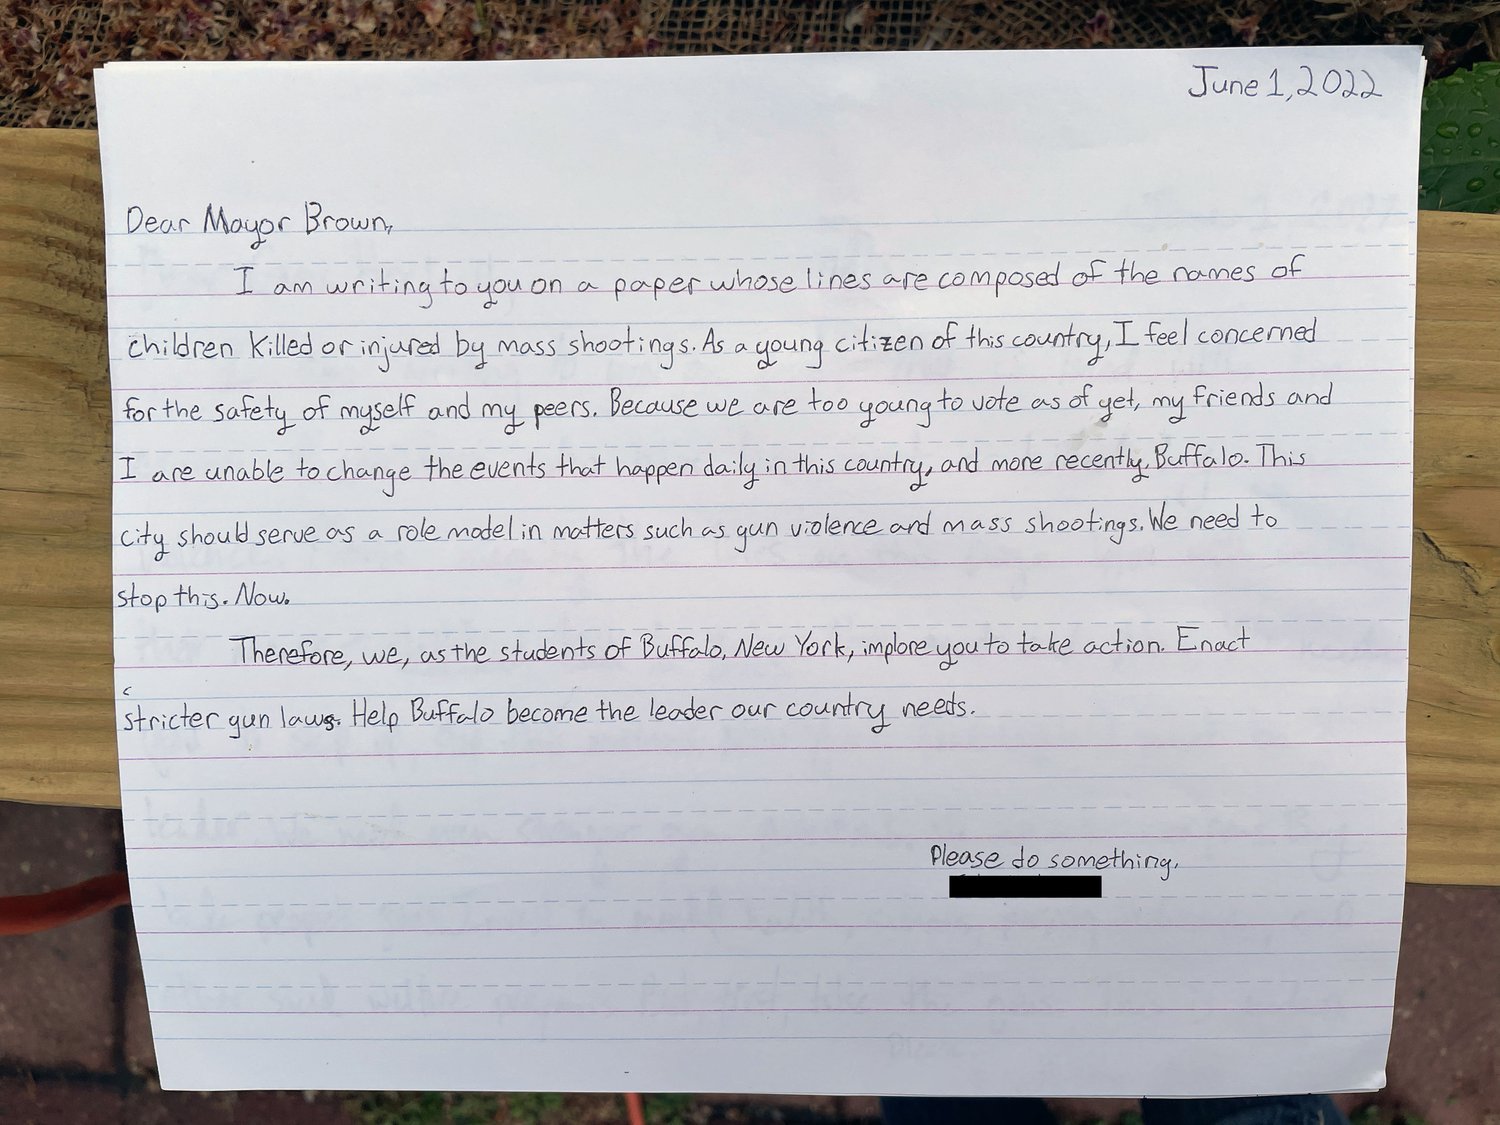 June 1, 2022
Dear Mayor Brown,
I am writing to you on a paper whose lines are composed of the names of
children killed or injured by mass shootings. As a young citizen of this country, I feel concerned
for the safety of myself and my peers. Because we are too young to vote as of yet, my friends and
I are unable to change the events that happen daily in this country, and more recently, Buffalo. This
city should serve as a role model in matters such as gun violence and mass shootings. We need to
stop this. Now.
Therefore, we, as the students of Buffalo, New York, implore you to take action. Enact
stricter gun laws. Help Buffalo become the leader our country needs.
Please do something,